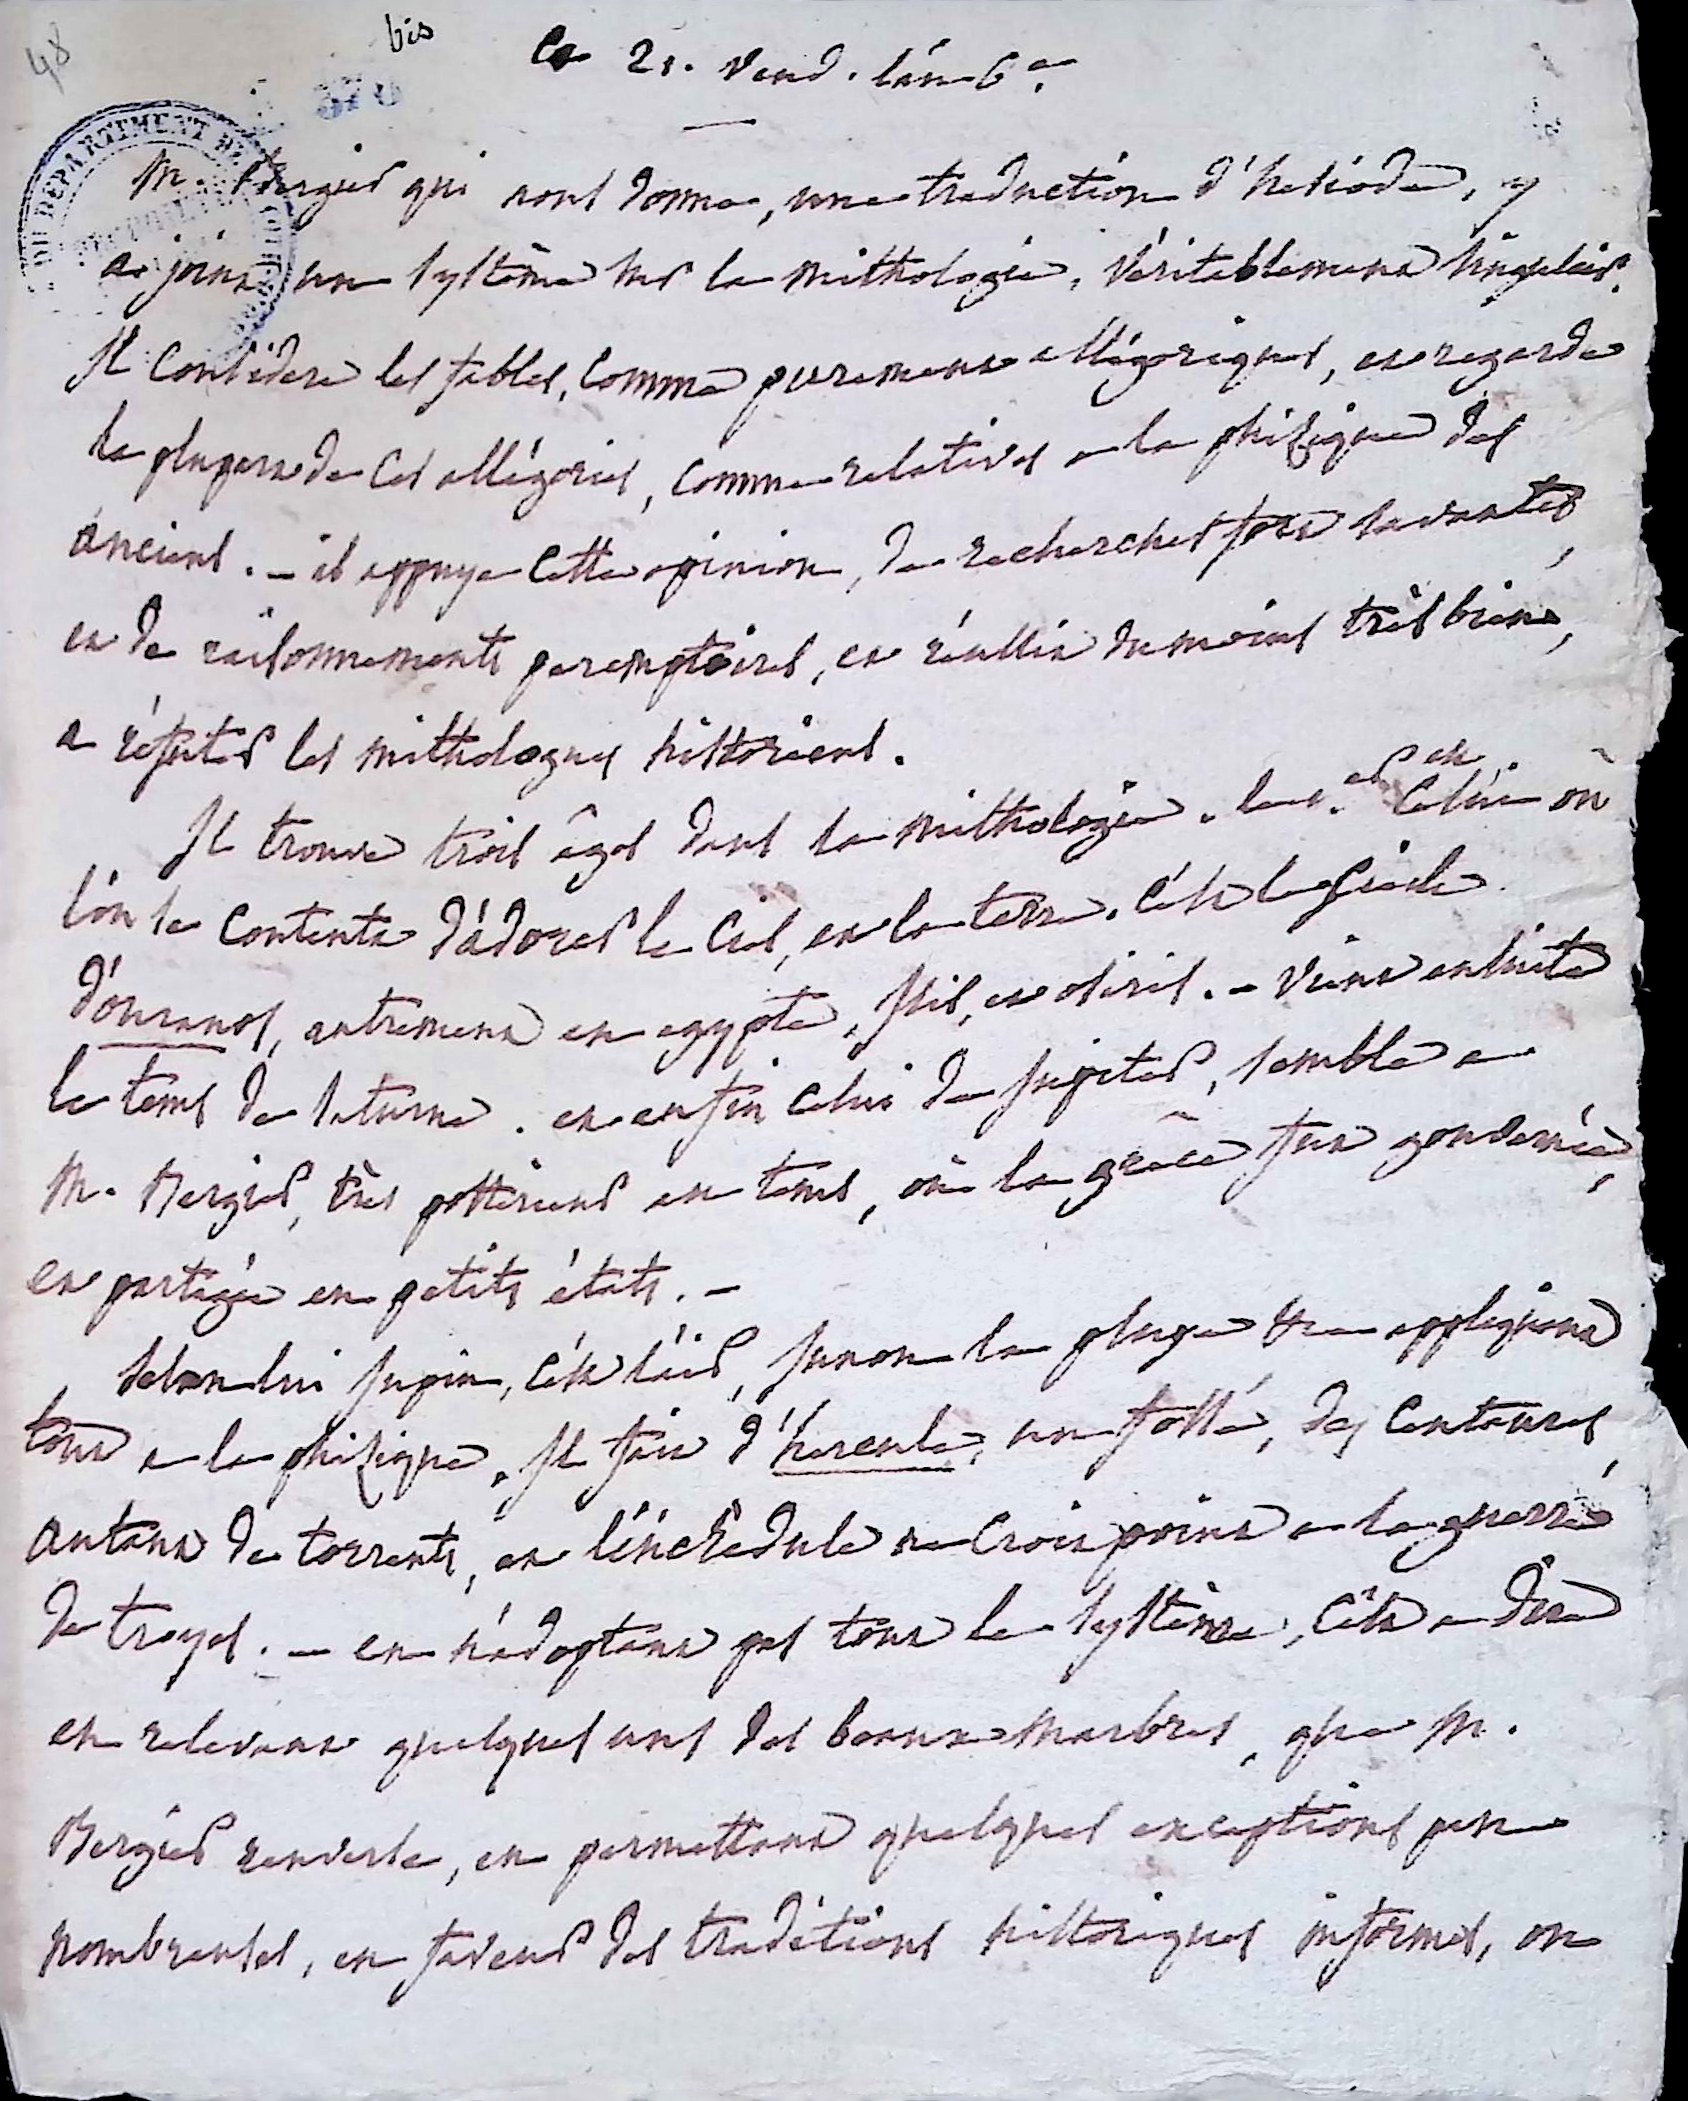 48
bis
le 21. vend. l'an 6e.
370
DU DÉPARTEMENT DE
M. Bergier qui nous donne, une traduction d'hesiode, y
a joint un système sur la mithologie, véritablement singulier.
Il considere les fables, comme purement allégoriques, et regarde
la plupart de ces allégories, comme relatives a la phisique des
anciens. - il appuye cette opinion, de recherches fort savantes,
et de raisonnements peremptoires, et réussit du moins très bien,
a réfuter les mithologues historiens.
Il trouve trois âges dans la mithologie. le 1.er est celui où
l'on se contenta d'adorer le Ciel, et la terre. c'est le siècle
d'ouranos, autrement en egypte, Isis, et osiris. - Vient ensuite
le tems de Saturne. et enfin celui de Jupiter, semble a
M. Bergier, très postérieur au tems, où la grèce fut gouvernée,
et partagée en petits états. -
Selon lui Jupin, c'est l'air, Junon la pluye &c appliquant
tout a la phisique, Il fait d'hercule, un fossé, des Centaures,
autant de torrents, et l'incrédule ne croit point a la guerre
de troyes. - en n'adoptant pas tout le système, c'est a dire
en relevant quelques uns des beaux marbres, que M.
Bergier renverse, en permettant quelques exceptions peu
nombreuses, en faveur des traditions historiques informes, on